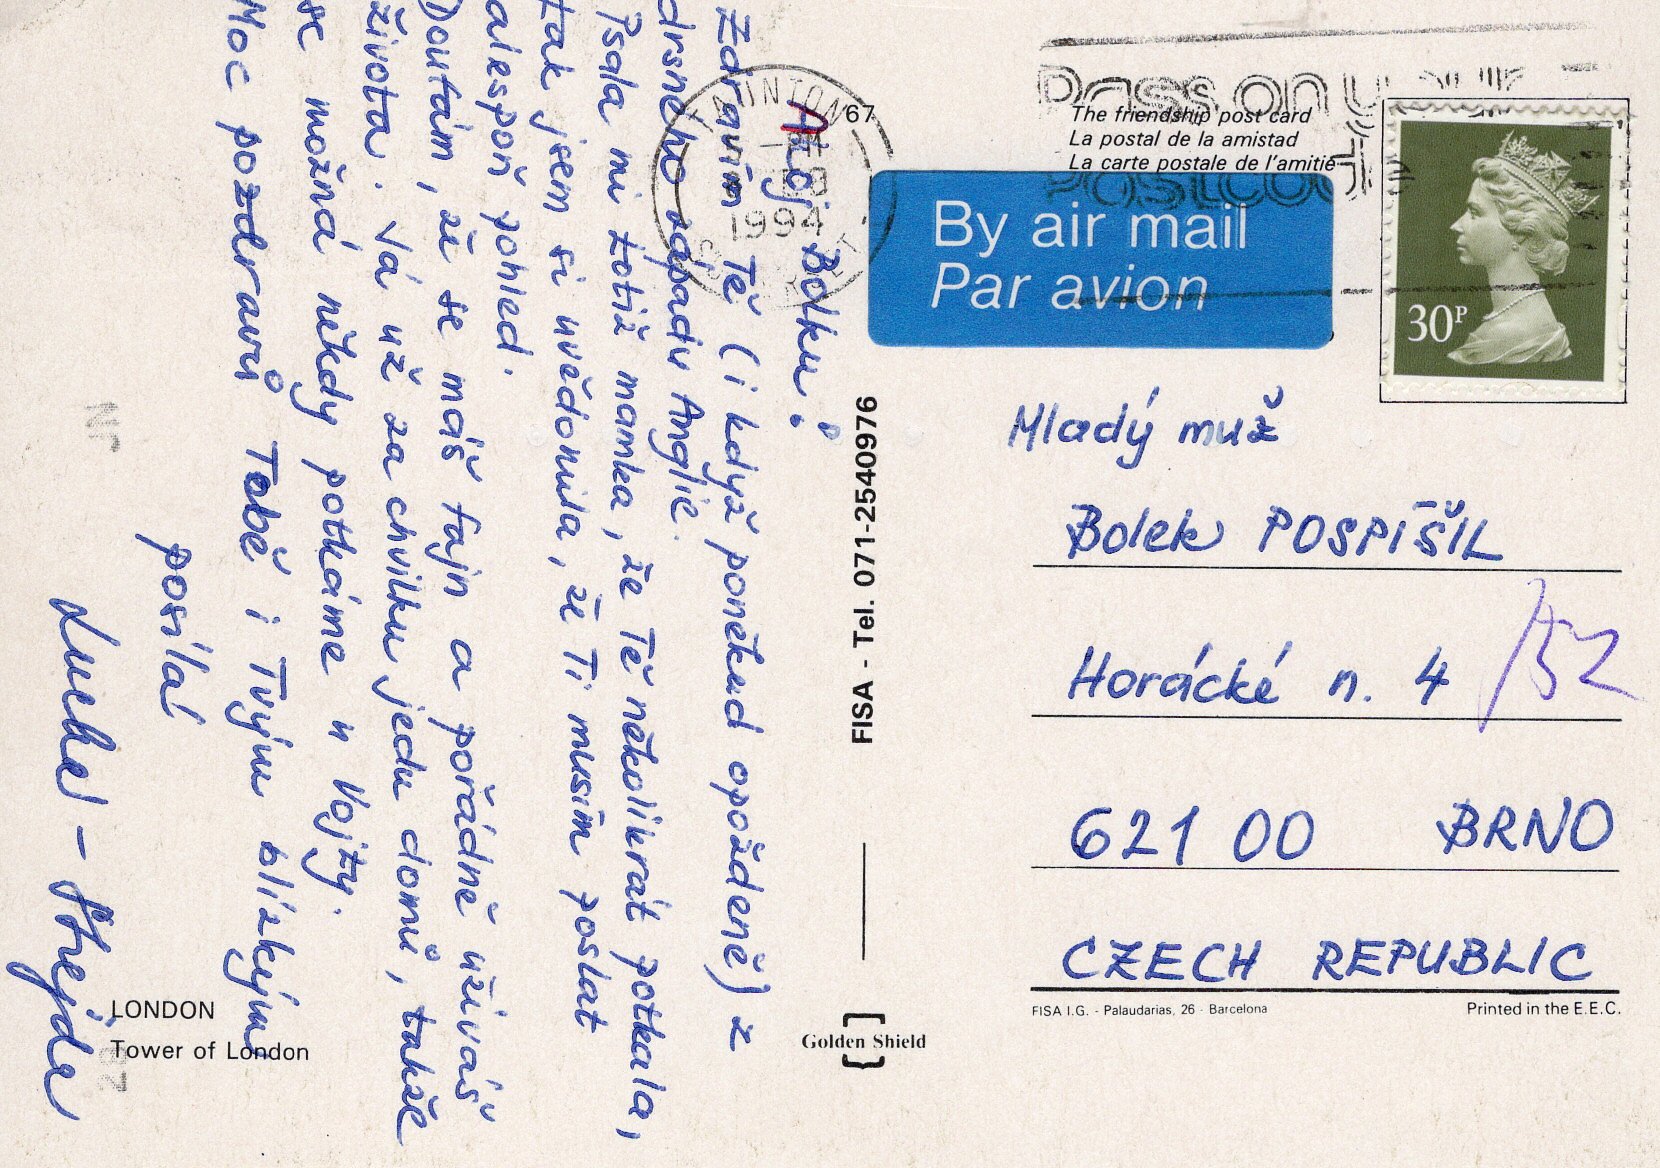 Ahoj Bolku!
Zdravím Tě (i když poněkud opožděně) z
drsného západu Anglie.
Psala mi totiž mamka, že Tě několikrát potkala,
tak jsem si uvědomila, že Ti musím poslat
alespoň pohled.
Doufám, že se máš fajn a pořádně užíváš
života. Já už za chvilku jedu domů, takže
se možná někdy potkáme u Vojty.
Moc pozdravů Tobě i Tvým blízkým
posílá
67
TAUNTON
1994
SOMERSET
Pass on
POSTCODE
The friendship post card
La postal de la amistad
La carte postale de l'amitié
By air mail
Par avion
30P
FISA - Tel. 071-2540976
Mladý muž
Bolek POSPÍŠIL
Horácké n. 4
152
621 00 BRNO
CZECH REPUBLIC
FISA I.G. - Palaudarias, 26 - Barcelona
Printed in the E.E.C.
Golden Shield
LONDON
Tower of London
JN